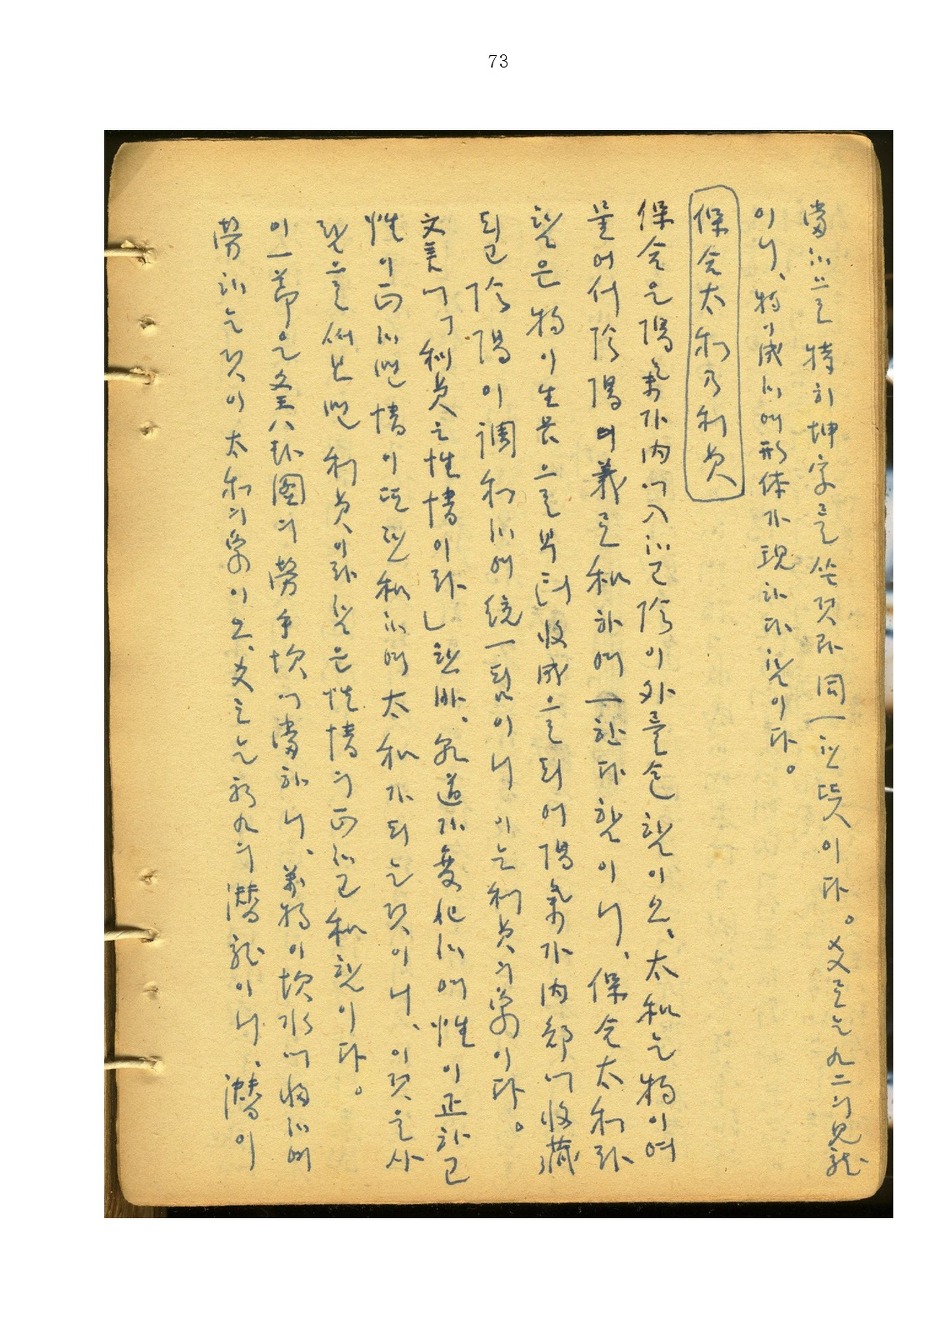 73
當하므로 特히 坤字를 쓴것과 同一한 뜻이다。爻로는 九二의 見龍
이니、物이 成하여 形体가 現하다 함이다。
保合太和乃利貞
保合은 陽氣가 內에 入하고 陰이 外를 包함이오、太和는 物이 여
물어서 陰陽의 義로 和하여 一한다 함이니、保合太和라
함은 物이 生長으로부터 收成으로 되어 陽氣가 內部에 收藏
되고 陰陽이 調和하여 統一됨이니 이는 利貞의 象이다。
文美에「利貞은 性情이라」한바、乾道가 變化하여 性이 正하고
性이 正하면 情이 또한 和하여 太和가 되는것이니、이것을 사
람으로써 보면 利貞이라 함은 性情의 正하고 和함이다。
이 一節은 文王八卦圖의 勞乎坎에 當하니、萬物이 坎水에 歸하여
勞하는 것이 太和의 象이오、爻로는 初九의 潛龍이니、潛이